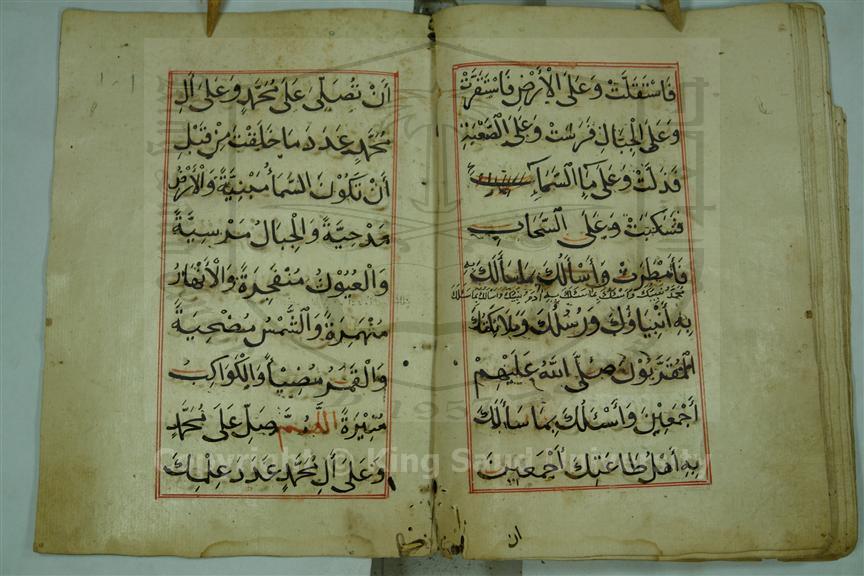 فَاسْتَقَلَّتْ وَعَلَى الْأَرْضِ فَاسْتَقَرَّتْ
وَعَلَى الْجِبَالِ فَرَسَتْ وَعَلَى الصَّعْبَةِ
فَذَلَّتْ وَعَلَى مَاءِ السَّمَاءِ
فَسَكَبَتْ وَعَلَى السَّحَابِ
فَأَمْطَرَتْ وَأَسْأَلُكَ بِمَا سَأَلَكَ بِهِ
محمد نبيك وأسئلك بما سئلك به آدم نبيك وأسالك بما سئلك
بِهِ أَنْبِيَاؤُكَ وَرُسُلُكَ وَمَلَائِكَتُكَ
الْمُقَرَّبُونَ صَلَّى اللَّهُ عَلَيْهِمْ
أَجْمَعِينَ وَأَسْئَلُكَ بِمَا سَأَلَكَ
بِهِ أَهْلُ طَاعَتِكَ أَجْمَعِينَ
ان
أَنْ تُصَلِّيَ عَلَى مُحَمَّدٍ وَعَلَى آلِ
مُحَمَّدٍ عَدَدَ مَا خَلَقْتَ مِنْ قَبْلِ
أَنْ تَكُونَ السَّمَاءُ مَبْنِيَّةً وَالْأَرْضُ
مَدْحِيَّةً وَالْجِبَالُ مَرْسِيَّةً
وَالْعُيُونُ مُنْفَجِرَةً وَالْأَنْهَارُ
مُنْهَمِرَةً وَالشَّمْسُ مُضْحِيَةً
وَالْقَمَرُ مُضِيْأً وَالْكَوَاكِبُ
مُنِيْرَةً اللَّهُمَّ صَلِّ عَلَى مُحَمَّدٍ
وَعَلَى آلِ مُحَمَّدٍ عَدَدَ عِلْمِكَ
Copyright © King Saud University
1957